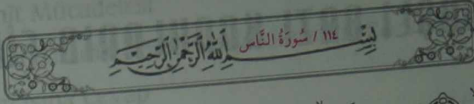 ١١٤ / سُورَةُ النَّاسِ
بِسْمِ اللّٰهِ الرَّحْمٰنِ الرَّحِيمِ